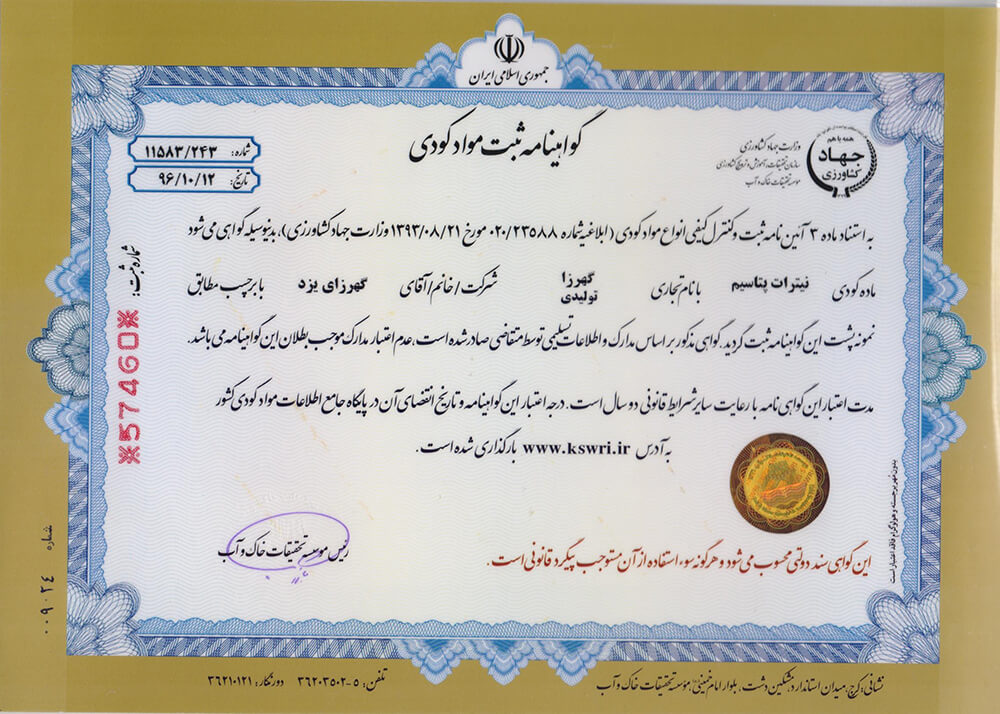 جمهوری اسلامی ایران
گواهینامه ثبت مواد کودی
شماره: ۱۱۵۸۳/۲۴۳
تاریخ: ۹۶/۱۰/۱۲
همه با هم
جهاد
کشاورزی
وزارت جهاد کشاورزی
سازمان تحقیقات، آموزش و ترویج کشاورزی
موسسه تحقیقات خاک و آب
به استناد ماده ۳ آئین نامه ثبت و کنترل کیفی انواع مواد کودی (ابلاغیه شماره ۰۲۰/۲۳۵۸۸ مورخ ۱۳۹۳/۰۸/۲۱ وزارت جهاد کشاورزی)، بدینوسیله گواهی می شود
ماده کودی نیترات پتاسیم با نام تجاری گهرزا تولیدی شرکت / خانم / آقای گهرزای یزد با برچسب مطابق
نمونه پشت این گواهینامه ثبت گردید. گواهی مذکور بر اساس مدارک و اطلاعات تسلیمی توسط متقاضی صادر شده است، عدم اعتبار مدارک موجب بطلان این گواهینامه می باشد.
مدت اعتبار این گواهی نامه با رعایت سایر شرایط قانونی دو سال است. درجه اعتبار این گواهینامه و تاریخ انقضای آن در پایگاه جامع اطلاعات مواد کودی کشور
به آدرس www.kswri.ir بارگذاری شده است.
شماره ثبت:
※57460※
رئیس موسسه تحقیقات خاک و آب
این گواهی سند دولتی محسوب می شود و هرگونه سوء استفاده از آن مستوجب پیگرد قانونی است.
بدون مهر برجسته و هولوگرام فاقد اعتبار است
شماره
۰۰۹۰۲۴
نشانی: کرج، میدان استاندارد، مشکین دشت، بلوار امام خمینی، موسسه تحقیقات خاک و آب
تلفن: ۵-۳۶۲۰۳۵۰۲ دورنگار: ۳۶۲۱۰۱۲۱